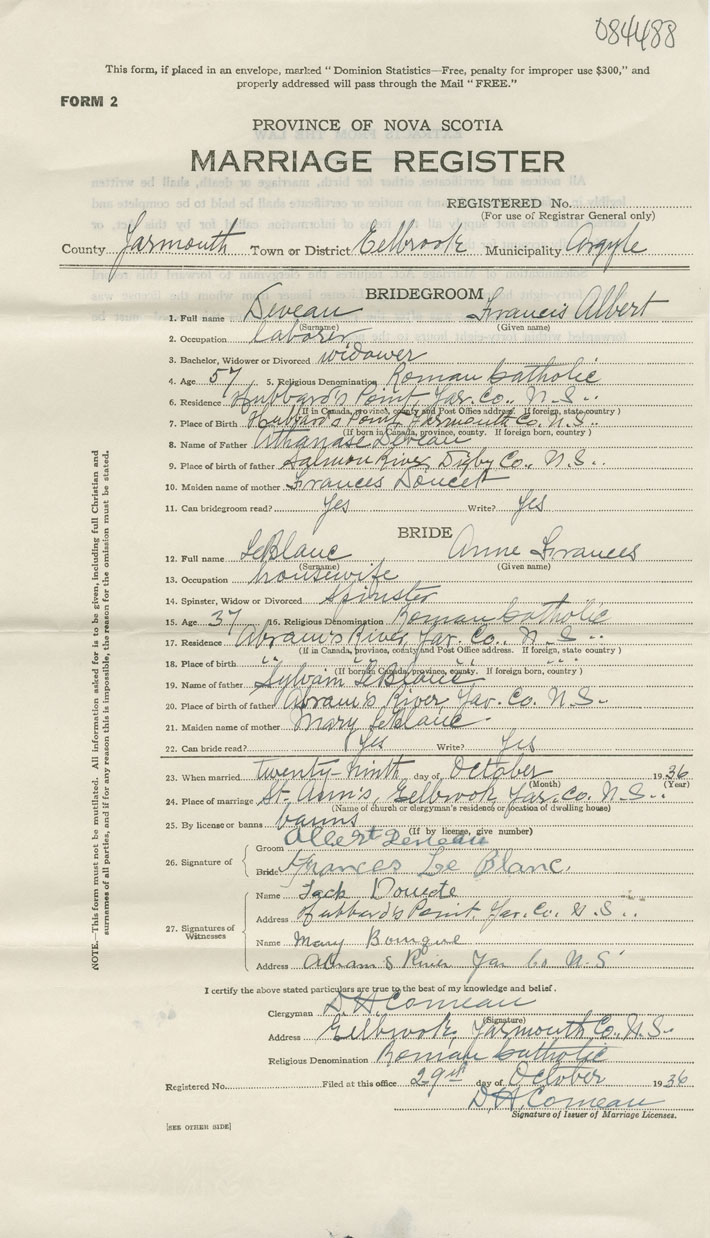 084488
This form, if placed in an envelope, marked "Dominion Statistics—Free, penalty for improper use $300," and
properly addressed will pass through the Mail "FREE."
FORM 2
PROVINCE OF NOVA SCOTIA
MARRIAGE REGISTER
REGISTERED No.
(For use of Registrar General only)
County Yarmouth Town or District Eelbrook Municipality Argyle
BRIDEGROOM
1. Full name Deveau Francis Albert
(Surname) (Given name)
2. Occupation laborer
3. Bachelor, Widower or Divorced widower
4. Age 57 5. Religious Denomination Roman Catholic
6. Residence Hubbard's Point Yar. Co., N.S.
(If in Canada, province, county and Post Office address. If foreign, state country)
7. Place of Birth Hubbard's Point, Yarmouth Co. N.S.
(If born in Canada, province, county. If foreign born, country)
8. Name of Father Athanase Deveau
9. Place of birth of father Salmon River, Digby Co., N.S.
10. Maiden name of mother Frances Doucet
11. Can bridegroom read? Yes Write? Yes
BRIDE
12. Full name LeBlanc Anne Frances
(Surname) (Given name)
13. Occupation housewife
14. Spinster, Widow or Divorced Spinster
15. Age 37 16. Religious Denomination Roman Catholic
17. Residence Abram's River, Yar. Co., N.S.
(If in Canada, province, county and Post Office address. If foreign, state country)
18. Place of birth " " " " " "
(If born in Canada, province, county. If foreign born, country)
19. Name of father Sylvain LeBlanc
20. Place of birth of father Abram's River Yar. Co. N.S.
21. Maiden name of mother Mary LeBlanc
22. Can bride read? Yes Write? Yes
23. When married twenty-ninth day of October 1936
(Month) (Year)
24. Place of marriage St. Ann's, Eelbrook Yar. Co. N.S.
(Name of church or clergyman's residence, or location of dwelling house)
25. By license or banns banns
(If by license, give number)
26. Signature of
Groom Albert Deveau
Bride Frances Le Blanc.
27. Signatures of Witnesses
Name Jack Doucte
Address Hubbard's Point Yar. Co. N.S.
Name Mary Bourque
Address Abram's River Yar Co N.S
I certify the above stated particulars are true to the best of my knowledge and belief.
Clergyman D. H. Comeau
(Signature)
Address Eelbrook, Yarmouth Co., N.S.
Religious Denomination Roman Catholic
Registered No. Filed at this office 29th day of October 1936
D. H. Comeau
Signature of Issuer of Marriage Licenses.
[SEE OTHER SIDE]
NOTE.—This form must not be mutilated. All information asked for is to be given, including full Christian and
surnames of all parties, and if for any reason this is impossible, the reason for the omission must be stated.